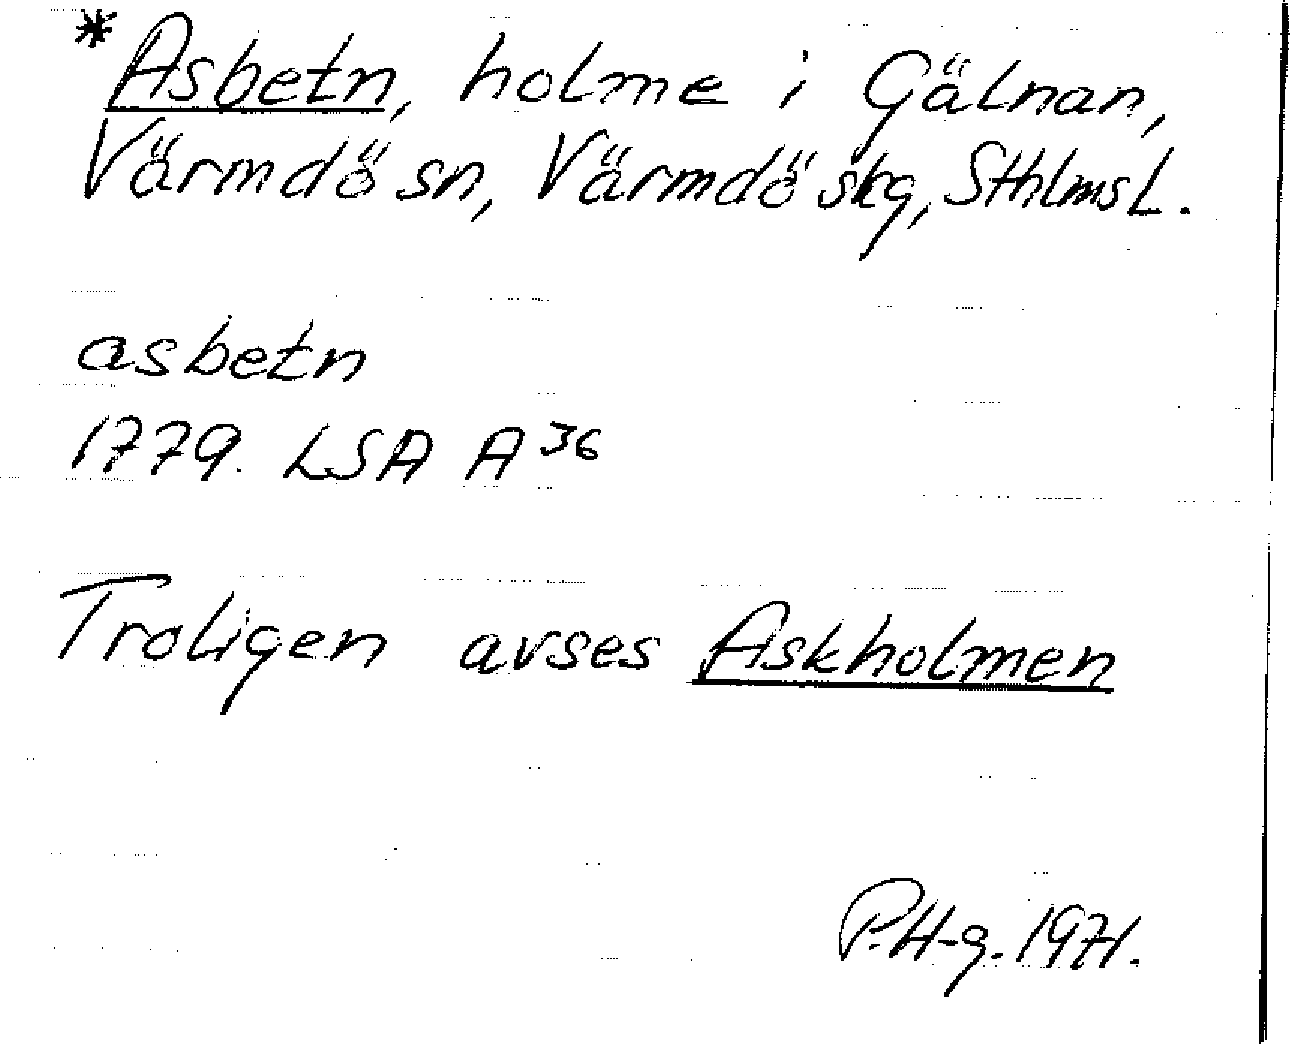 *Asbetn, holme i Gälnan,
Värmdö sn, Värmdö skg, Sthlms L.
asbetn
1779. LSA A 36
Troligen avses Askholmen
P.H-g. 1971.